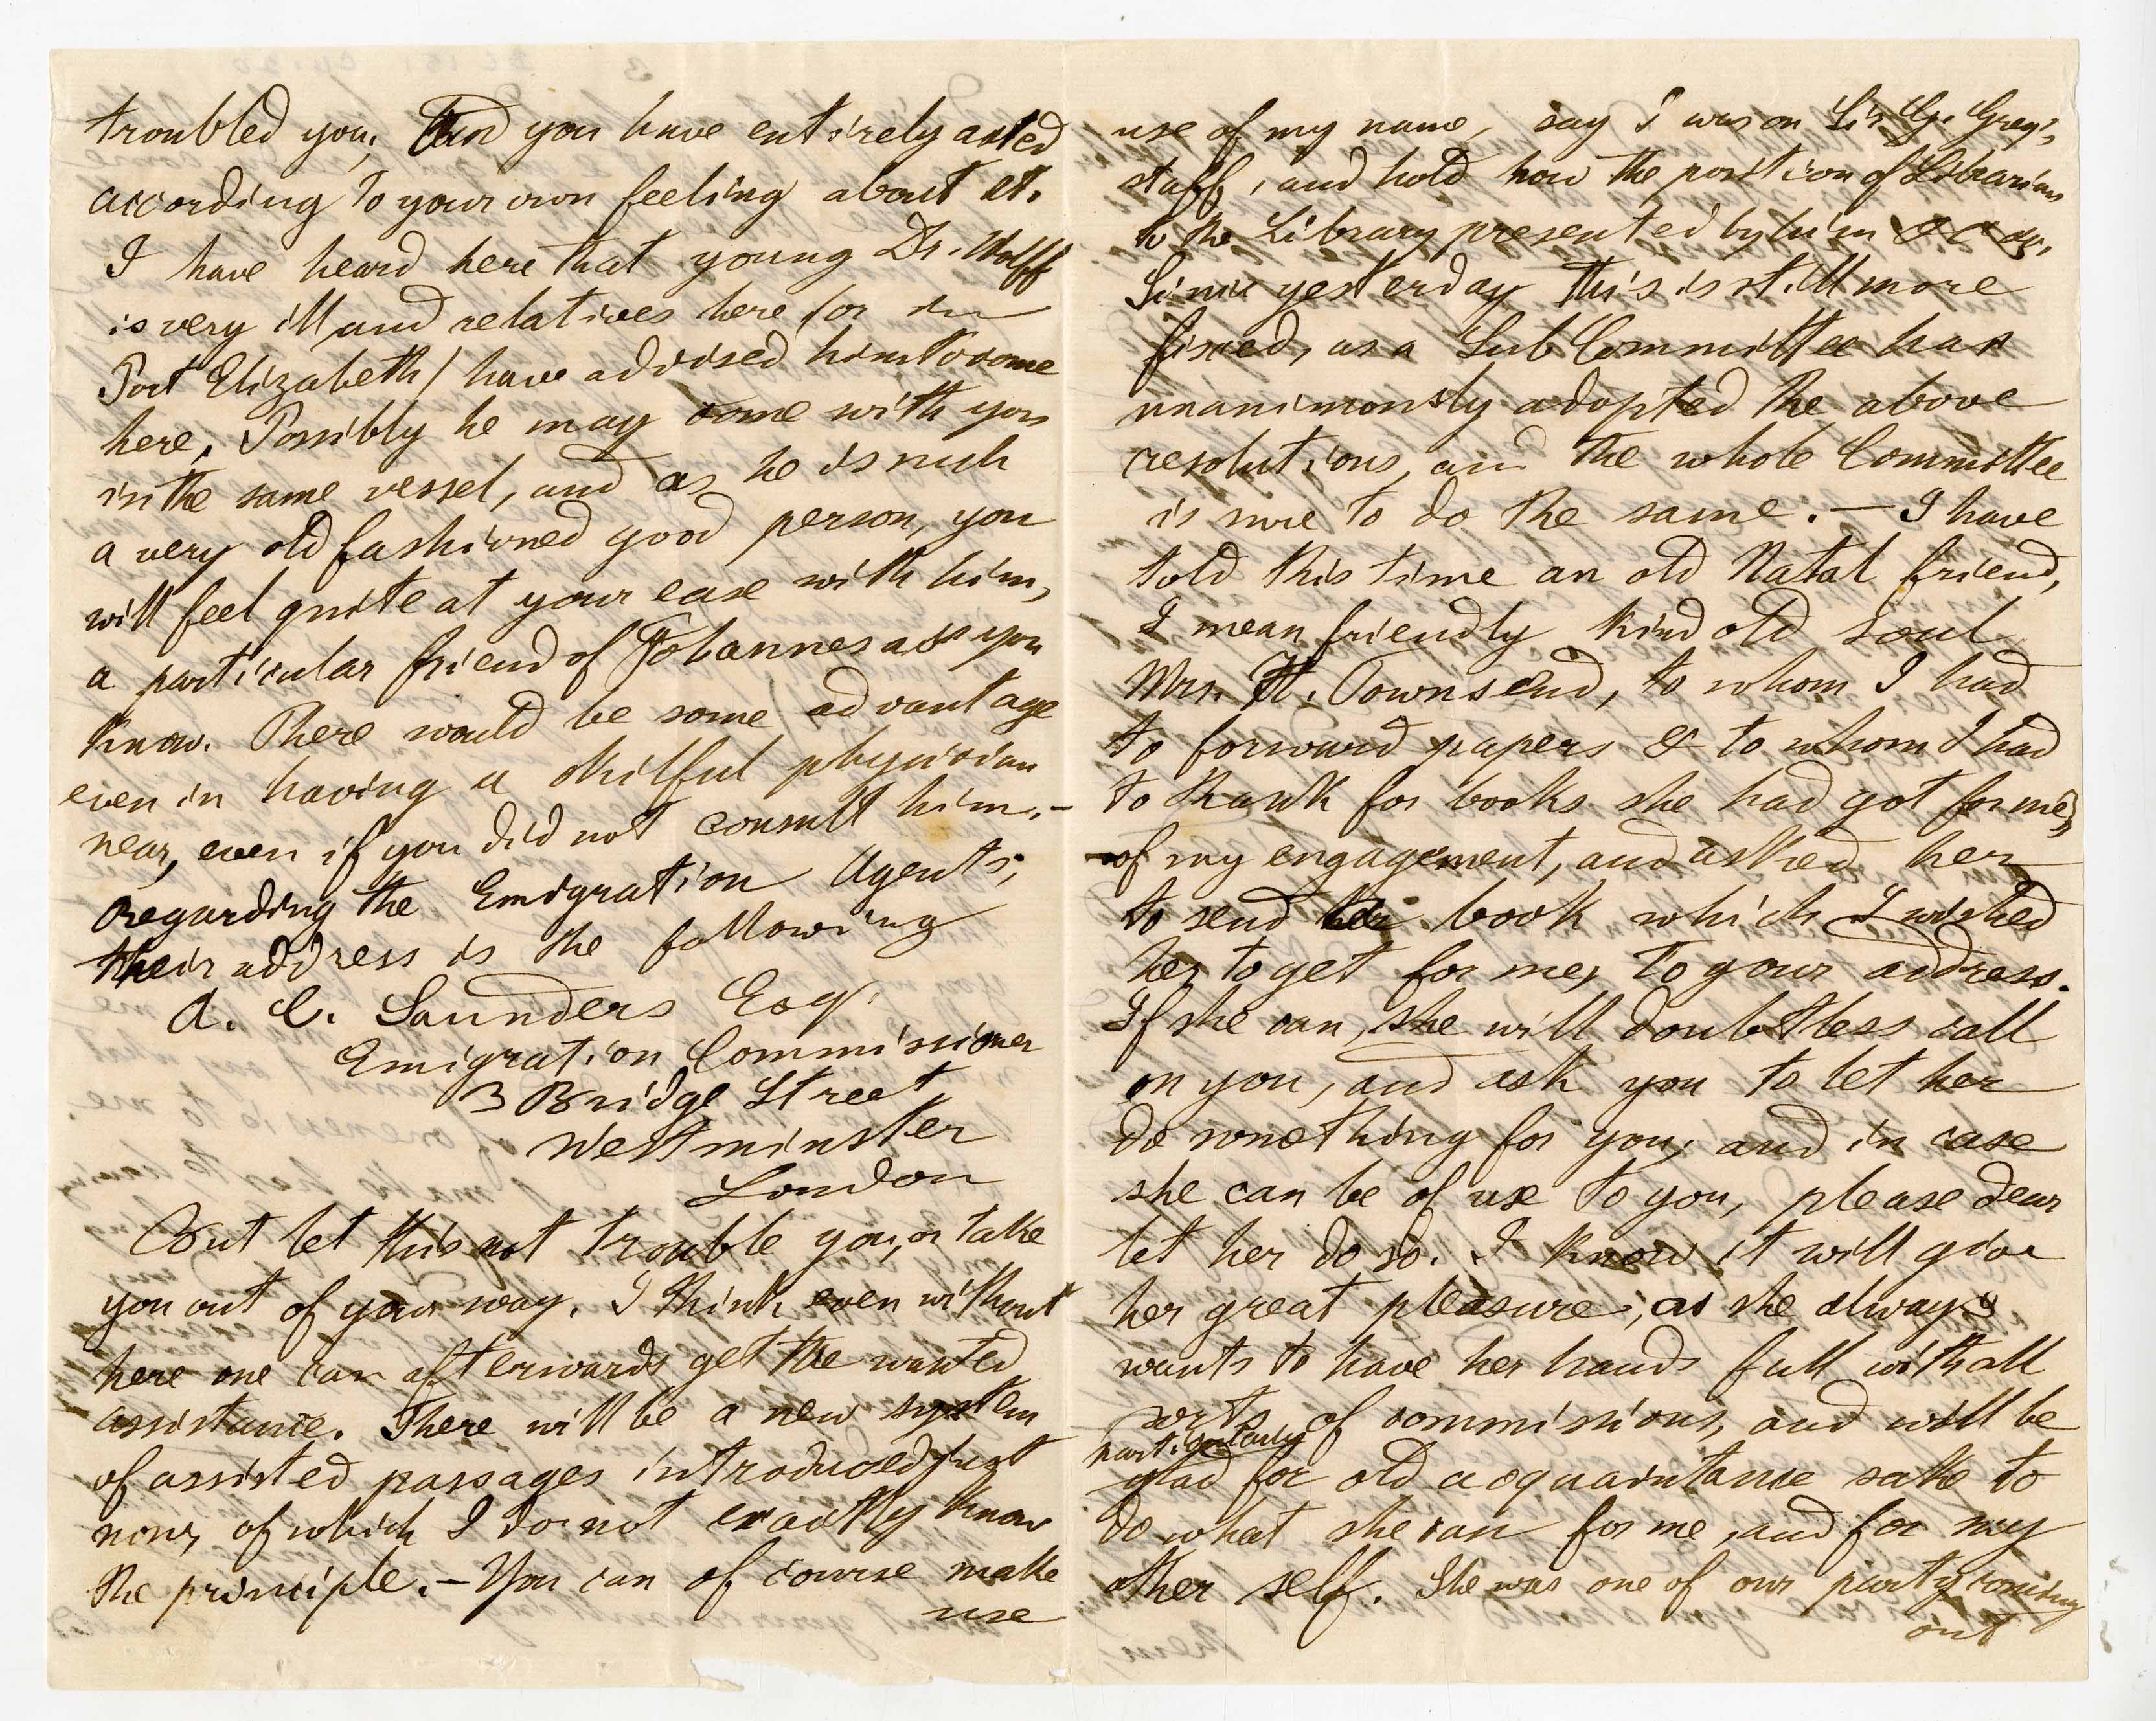 troubled you; And you have entirely acted
according to your own feeling about it.
I have heard here that young Dr. Wolff
is very ill and relatives here (or in
Port Elizabeth) have advised him to come
here. Possibly he may come with you
in the same vessel, and as he is such
a very old fashioned good person, you
will feel quite at your ease with him,
a particular friend of Johannes as you
know. There would be some advantage
even in having a skilful physician
near, even if you did not consult him. -
Regarding the Emigration Agents,
their address is the following
A. C. Saunders Esq.
Emigration Commissioner
3 Bridge Street
Westminster
London
But let this not trouble you, or take
you out of your way. I think even without
here one can afterwards get the wanted
assistance. There will be a new system
of assisted passages introduced just
now, of which I do not exactly know
the principle. - You can of course make
use
use of my name, say I was on Sir G. Grey's
staff, and hold now the position of Librarian
to the Library presented by him &c &c.
Since yesterday this is still more
fixed, as a Sub Committee has
unanimously adopted the above
resolutions, and the whole Committee
is sure to do the same. - I have
told this time an old Natal friend,
I mean friendly kind old soul
Mrs. H. Townsend, to whom I had
to forward papers & to whom I had
to thank for books she had got for me,
of my engagement, and asked her
to send book which I wished
her to get for me, to your address.
If she can, she will doubtless call
on you, and ask you to let her
do something for you; and in case
she can be of use to you, please dear
let her do so. I know it will give
her great pleasure, as she always
wants to have her hands full with all
sorts of commissions, and will be
particularly
glad for old acquaintance sake to
do what she can for me, and for my
other self. She was one of our party coming
out